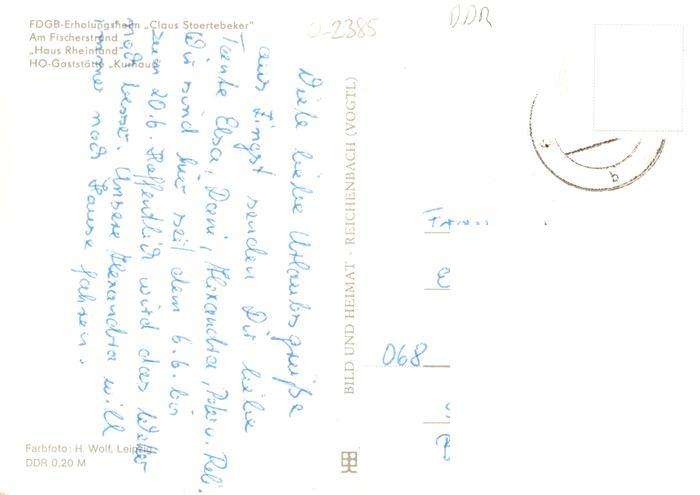 FDGB-Erholungsheim „Claus Stoertebeker"
Am Fischerstrand
„Haus Rheinland"
HO-Gaststätte „Kurhaus"
0-2385
DDR
Viele liebe Urlaubsgrüße
aus Zingst senden Dir liebe
Tante Elsa, Dani, Alexandra, Peter u. Reli.
Wir sind hier seit dem 6.6. bis
zum 20.6. Hoffentlich wird das Wetter
noch besser. Unsere Alexandra will
immer nach Hause fahren.
BILD UND HEIMAT · REICHENBACH (VOGTL)
Fam
068
b
Farbfoto: H. Wolf, Leipzig
DDR 0,20 M